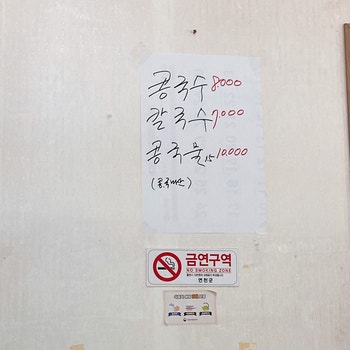 콩국수 8.000
칼국수 7.000
콩국물 15 10.000
금연구역
NO SMOKING ZONE
연천군